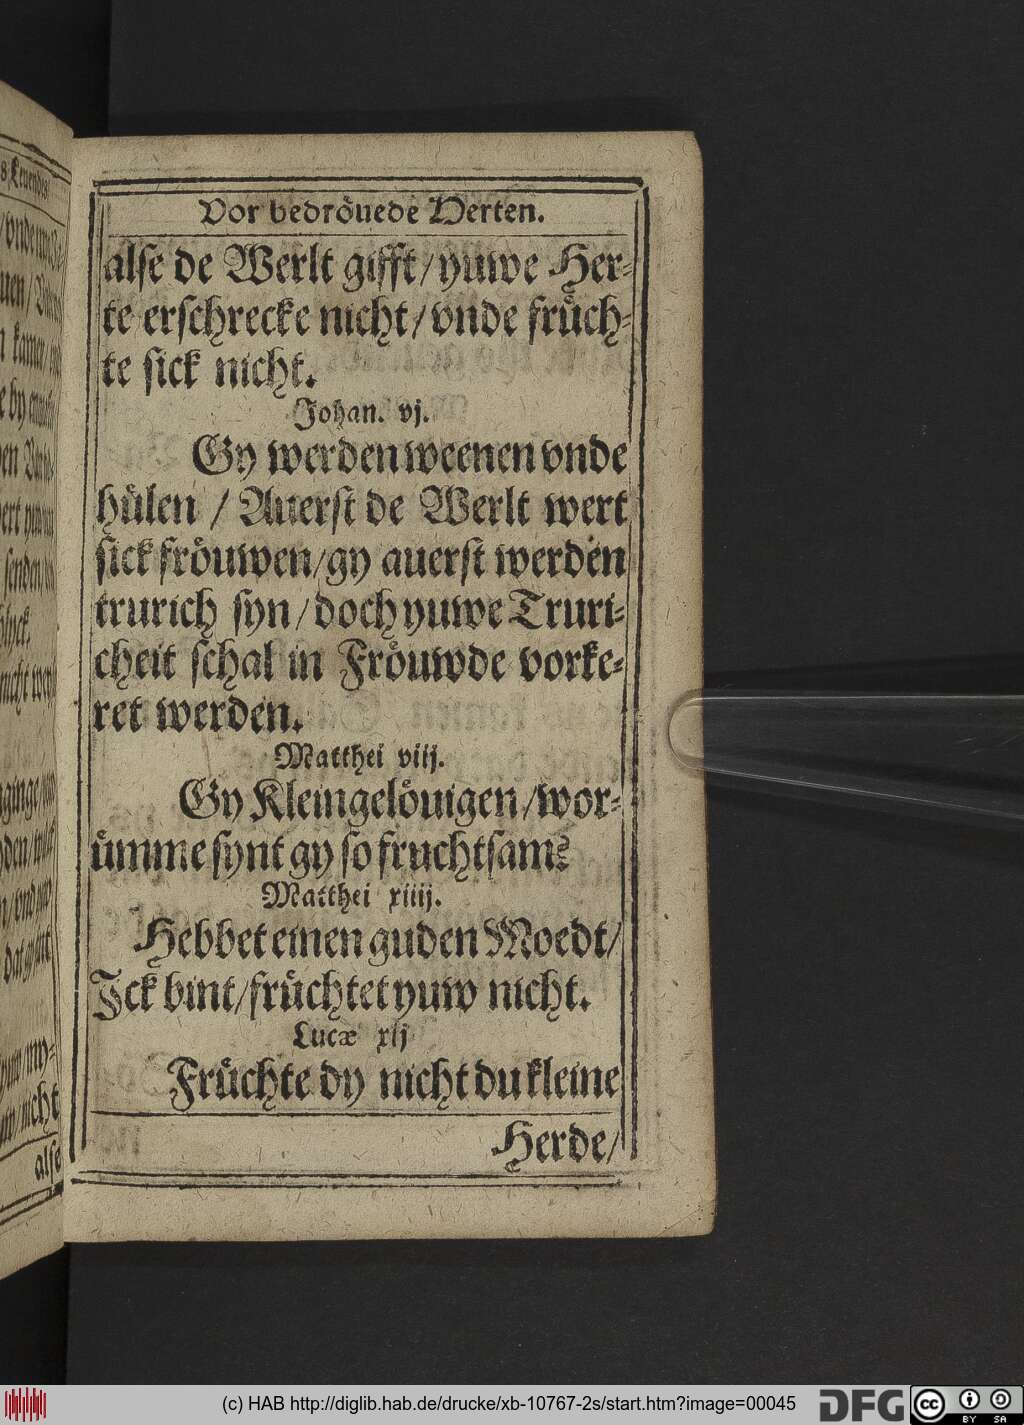 Vor bedröuede Herten.
alse de Werlt gifft / yuwe Her-
te erschrecke nicht / vnde früch-
te sick nicht.
Johan. vj.
Gy werden weenen vnde
hülen / Auerst de Werlt wert
sick fröuwen / gy auerst werden
trurich syn / doch yuwe Truri-
cheit schal in Fröuwde vorke-
ret werden.
Matthei viij.
Gy Kleingelöuigen / wor-
ümme synt gy so fruchtsam?
Matthei xiiij.
Hebbet einen guden Moedt /
Ick bint / früchtet yuw nicht.
Lucæ xij
Früchte dy nicht du kleine
Herde /
alse
(c) HAB http://diglib.hab.de/drucke/xb-10767-2s/start.htm?image=00045
DFG
cc BY SA